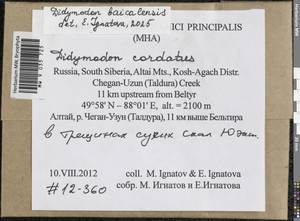 Didymodon baicalensis
det. E. Ignatova, 2025
ICI PRINCIPALIS
(MHA)
Didymodon cordatus
Russia, South Siberia, Altai Mts., Kosh-Agach Distr.
Chegan-Uzun (Taldura) Creek
11 km upstream from Beltyr
49°58' N – 88°01' E, alt. = 2100 m
Алтай, р. Чеган-Узун (Талдура), 11 км выше Бельтира
в трещинах сухих скал Ю экп.
10.VIII.2012
coll. M. Ignatov & E. Ignatova
#12-360
собр. М. Игнатов и Е.Игнатова